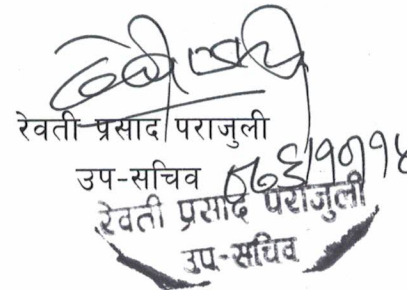 रेवती प्रसाद पराजुली
उप-सचिव
रेवती प्रसाद पराजुली
उप-सचिव